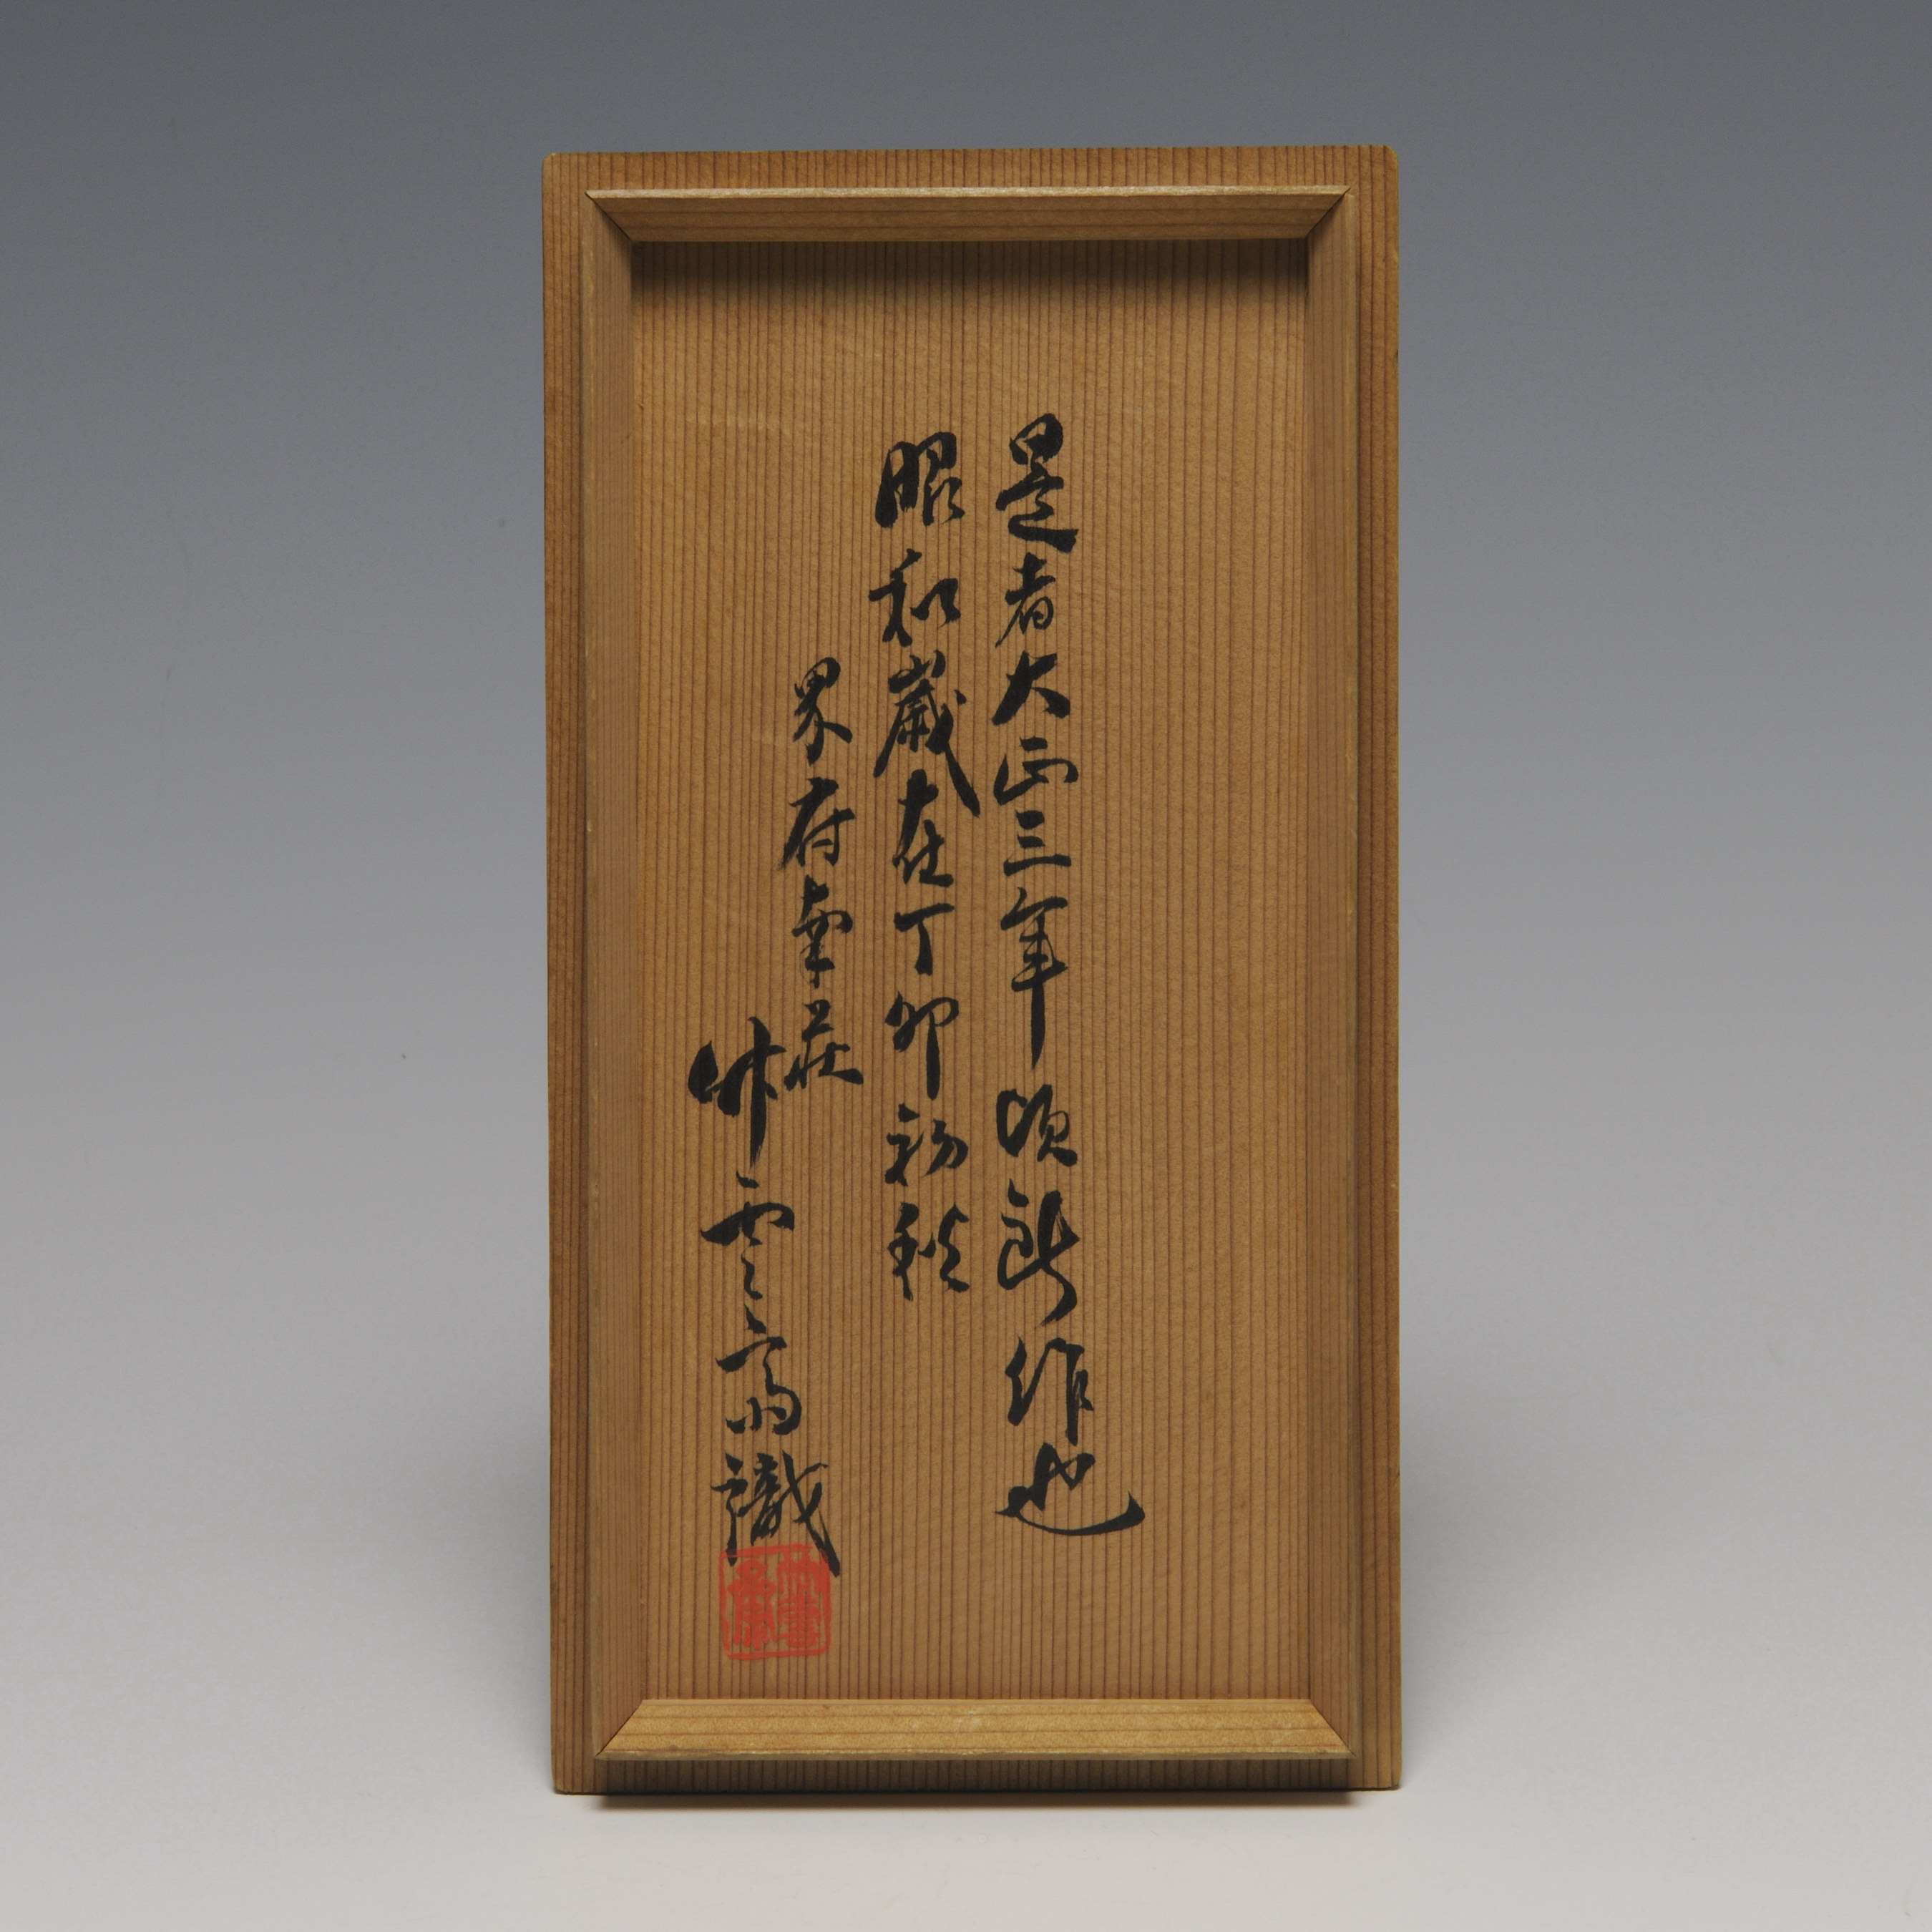 是者大正三年頃新作也
昭和歳在丁卯初秋
界府南荘
竹雲斎識
竹雲斎